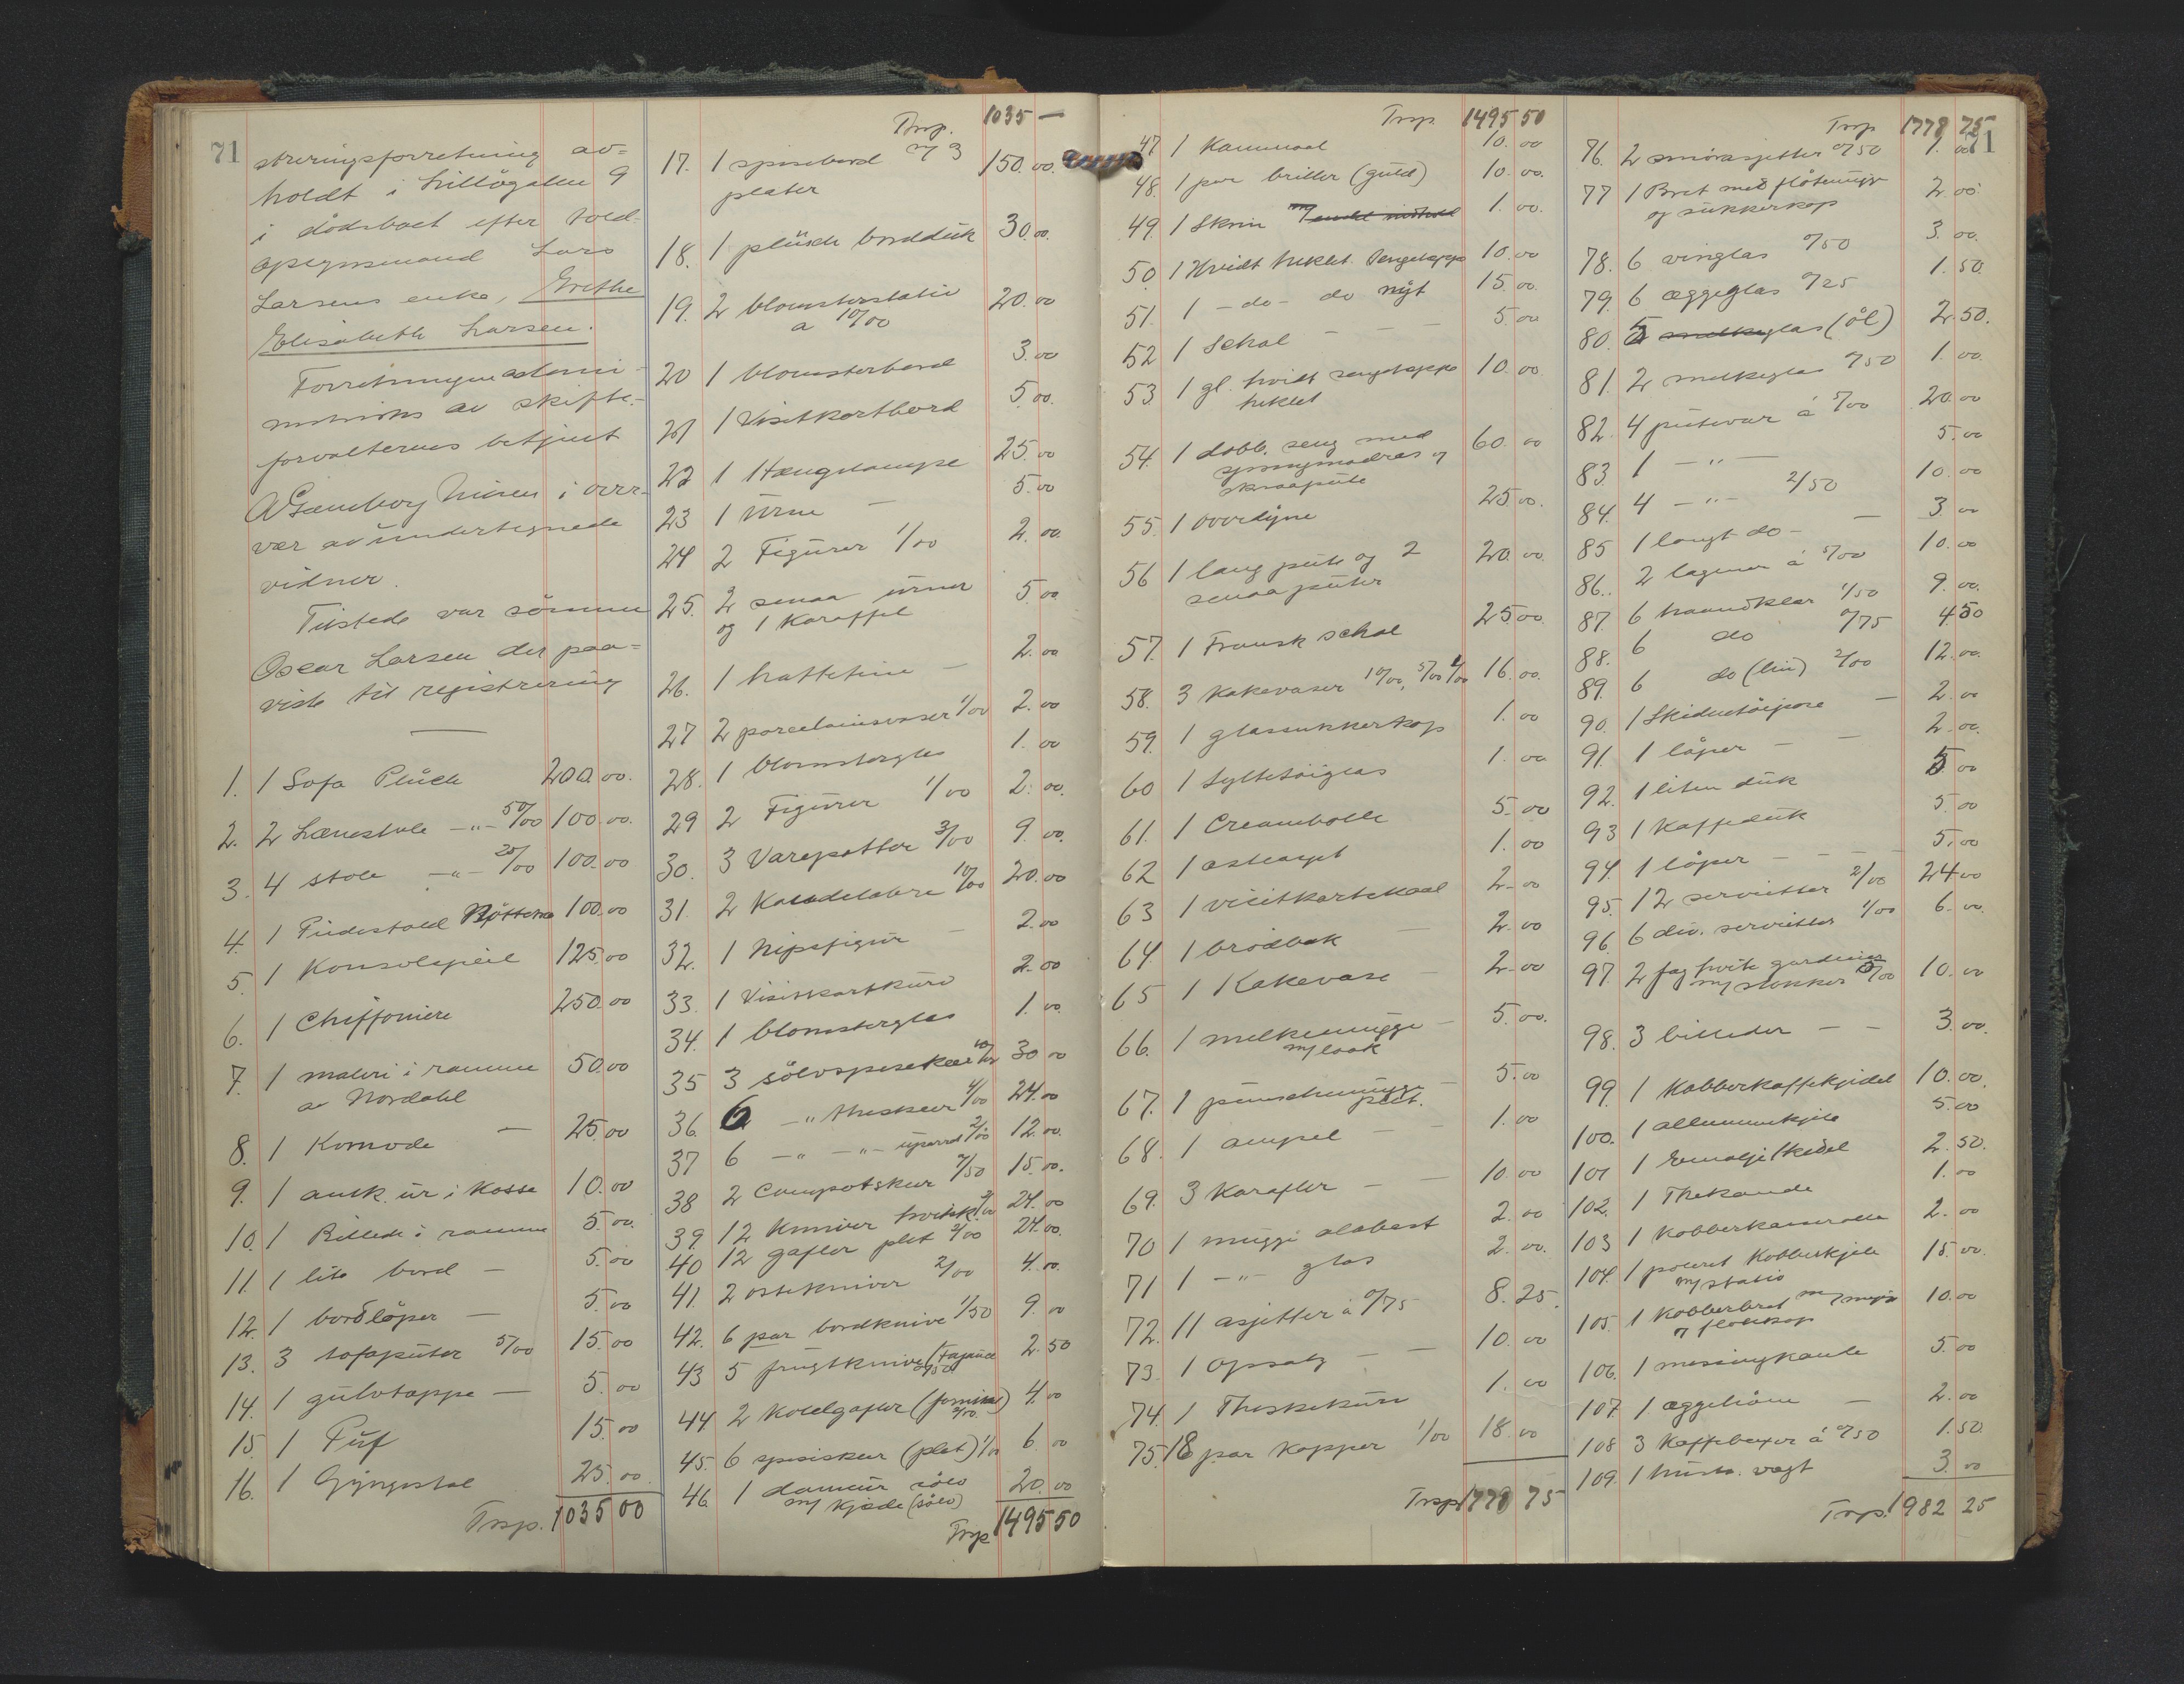 71
streringsforretning av=
holdt i Lilløgaten 9
i dødsboet efter Told-
opsynsmand Lars
Larsens enke, Grethe
Elisabeth Larsen.
Forretningen admi-
nistrertes av skifte-
forvalternes betjent
i over-
vær av undertegnede
vidner.
Tilstede var sønnen
Oscar Larsen der paa=
viste til registrering
1. 1 Sofa Plüch 200.00.
2. 2 Lænestole -"- 50/00 100.00.
3. 4 stole -"- 25/00 100.00
4. 1 Pidestall Nøttetræ 100.00
5. 1 Konsolspeil 125.00
6. 1 Chiffoniere 250.00
7. 1 maleri i ramme 50.00
av Nordahl
8. 1 Komode — 25.00
9. 1 antk. ur i Kasse 10.00
10. 1 Billede i ramme 5.00.
11. 1 lite bord — 5.00
12. 1 bordløper — 5.00
13. 3 sofaputer 5/00 15.00
14. 1 gulvtæppe — 5.00
15. 1 Puf 15.00
16. 1 Gyngestol 25.00
Trsp. 1035 00
Trsp. 1035 —
17. 1 spisebord m/ 3 150.00.
plater
18. 1 plüsch borddük 30.00.
19. 2 blomsterstativ 20.00
a 10/00
20 1 blomsterbord 3.00
21 1 Visitkortbord 5.00.
22 1 Hængelampe 25.00
23 1 Urne — 5.00
24 2 Figürer 1/00 2.00.
25. 2 smaa ürner 5.00
og 1 Karaffel
26. 1 hattetine — 2.00
27 2 porcelainsvaser 1/00 2.00
28. 1 blomsterglas 1.00
29 2 Figürer 1/00 2.00.
30. 3 Varepotter 3/00 9.00.
31. 2 Kandelabre 10/00 20.00
32. 1 Nipsfigür — 2.00
33. 1 Visitkortkürv 2.00
34. 1 blomsterglas 1.00.
35 3 sølvspiseskeer 10/00 30 00
36. 6 -"- theskeer 4/00 24.00
37 6 -"- -"- 2/00 12.00.
38 2 Compotskeer 7/50 15.00.
39. 12 Kniver hvitsk. 2/00 24.00
40 12 gafler plet 2/00 24.00.
41. 2 osteknivar 2/00 4.00.
42. 6 par bordknive 1/50 9.00
43 5 frugtknive (Fajance 2.50
0/50
44 2 Koldgafler (fornikl) 4.00
2/00.
45. 6 spiseskeer (plet) 1/00 6.00
46. 1 dameür sølv 20.00
m/ Kjæde (sølv)
Trsp 1495 50
Trsp 1495 50
47 1 Kammaal 10.00
48. 1 par briller (guld) 10.00.
49. 1 Skrin m/ 1.00.
50. 1 Hvidt heklet Sengetæppe 10.00
51. 1 - do - do nyt 15.00.
52 1 Schal — — — 5.00
53. 1 gl. hvidt sengetæppe 10.00.
heklet
54. 1 dobb. seng med 60.00
springmadras og
skraapute
55. 1 overdyne 25.00.
56 1 lang pute og 2 20.00.
smaa puter
57. 1 Fransk schal 25.00.
58. 3 Kakevaser 10/00, 5/00 1/00 16.00.
59. 1 glassukkerkop 1.00
60 1 Syltetøiglas 1.00
61. 1 Creambolle 5.00
62 1 asteaget 1.00
63 1 visitkortskaal 2.00
64 1 brødbak — 2.00
65 1 Kakevase 2.00
66. 1 melkemugge — 5.00.
m/ laak
67. 1 punschmugge — 5.00
plet.
68. 1 ampel — — 1.00
69. 3 Karafler — — 10.00
70 1 mugge alabast 2.00
71 1 -"- glas 2.00.
72. 11 asjetter à 0/75 8.25.
73. 1 Opsats — — 10.00
74. 1 Theskekurv 1.00
75. 18 par Kopper 1/00 18.00
Trsp 1778 75
71
Trsp 1778 75
76. 2 smørasjetter 0/50 1.00
77 1 Bret med fløtemugge 2.00
og sukkerkop
78. 6 vinglas 0/50 3.00.
79. 6 æggeglas 0/25 1.50
80. 5 melkeglas (øl) 2.50.
81. 2 melkeglas 0/50 1.00
82. 4 putevar à 5/00 20.00
83. 1 -"- 5.00
84. 4 -"- 2/50 10.00
85 1 langt do - — 3.00
86.. 2 lagener à 5/00 10.00
87. 6 haandklær 1/50 9.00.
88. 6 do 0/75 4 50
89. 6 do (lin) 2/00 12.00.
90. 1 Skidentøipose — 2.00
91. 1 løper — — 2.00.
92. 1 liten duk 5.00
93 1 Kaffeduk 5.00
94. 1 løper — — — 5.00
95. 12 servietter 2/00 24.00
96. 6 div. servietter 1/00 6.00.
97. 2 fag hvite gardiner 10.00
m/ stokker 5/00
98. 3 billeder — — 3.00.
99. 1 Kobberkaffekjedel 10.00.
100. 1 alluminiumkjele 5.00
101 1 Emalje Kedel 2.50.
102. 1 Thekande 1.00
103 1 Kobberkasserolle 2.00
104. 1 poleret Kobberkjele 15.00.
m/ stativ
105. 1 Kobberbret m/ mugge 10.00
og fløtekop
106. 1 messingkande 5.00
107. 1 æggehøne — 2.00
108 3 Kaffebøxer à 0/50 1.50
109. 1 hush. vægt 3.00
Trsp. 1982 25